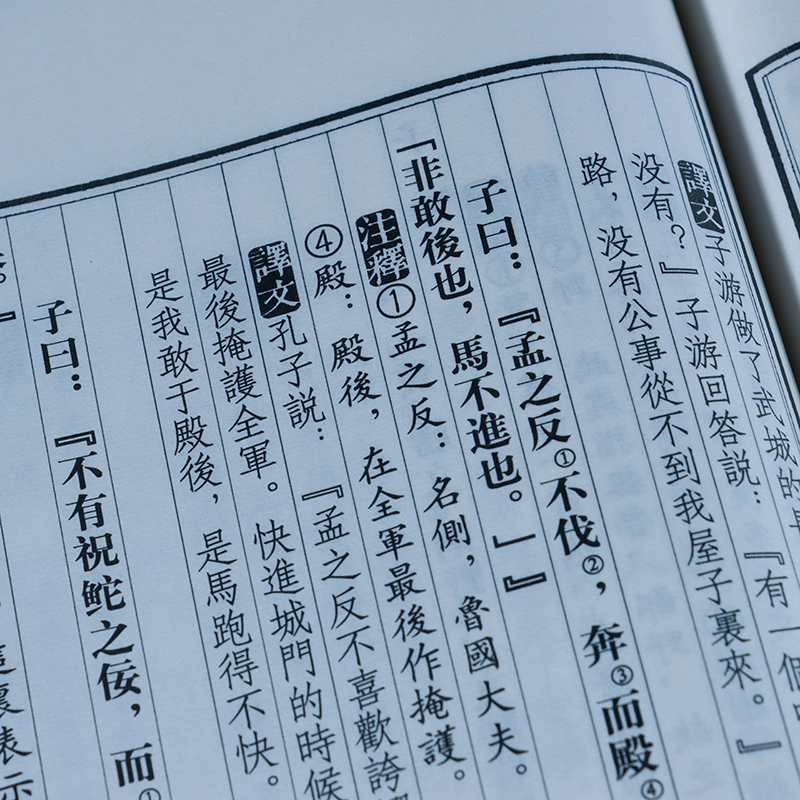 譯文 子游做了武城的
没有？』子游回答説：『有一個
路，没有公事從不到我屋子裏來。』
子曰：『孟之反①不伐②，奔③而殿④
「非敢後也，馬不進也。」』
注釋 ①孟之反：名側，魯國大夫。
④殿：殿後，在全軍最後作掩護。
譯文 孔子説：『孟之反不喜歡誇
最後掩護全軍。快進城門的時候
是我敢于殿後，是馬跑得不快。
子曰：『不有祝鮀之佞，而①
這裏表示